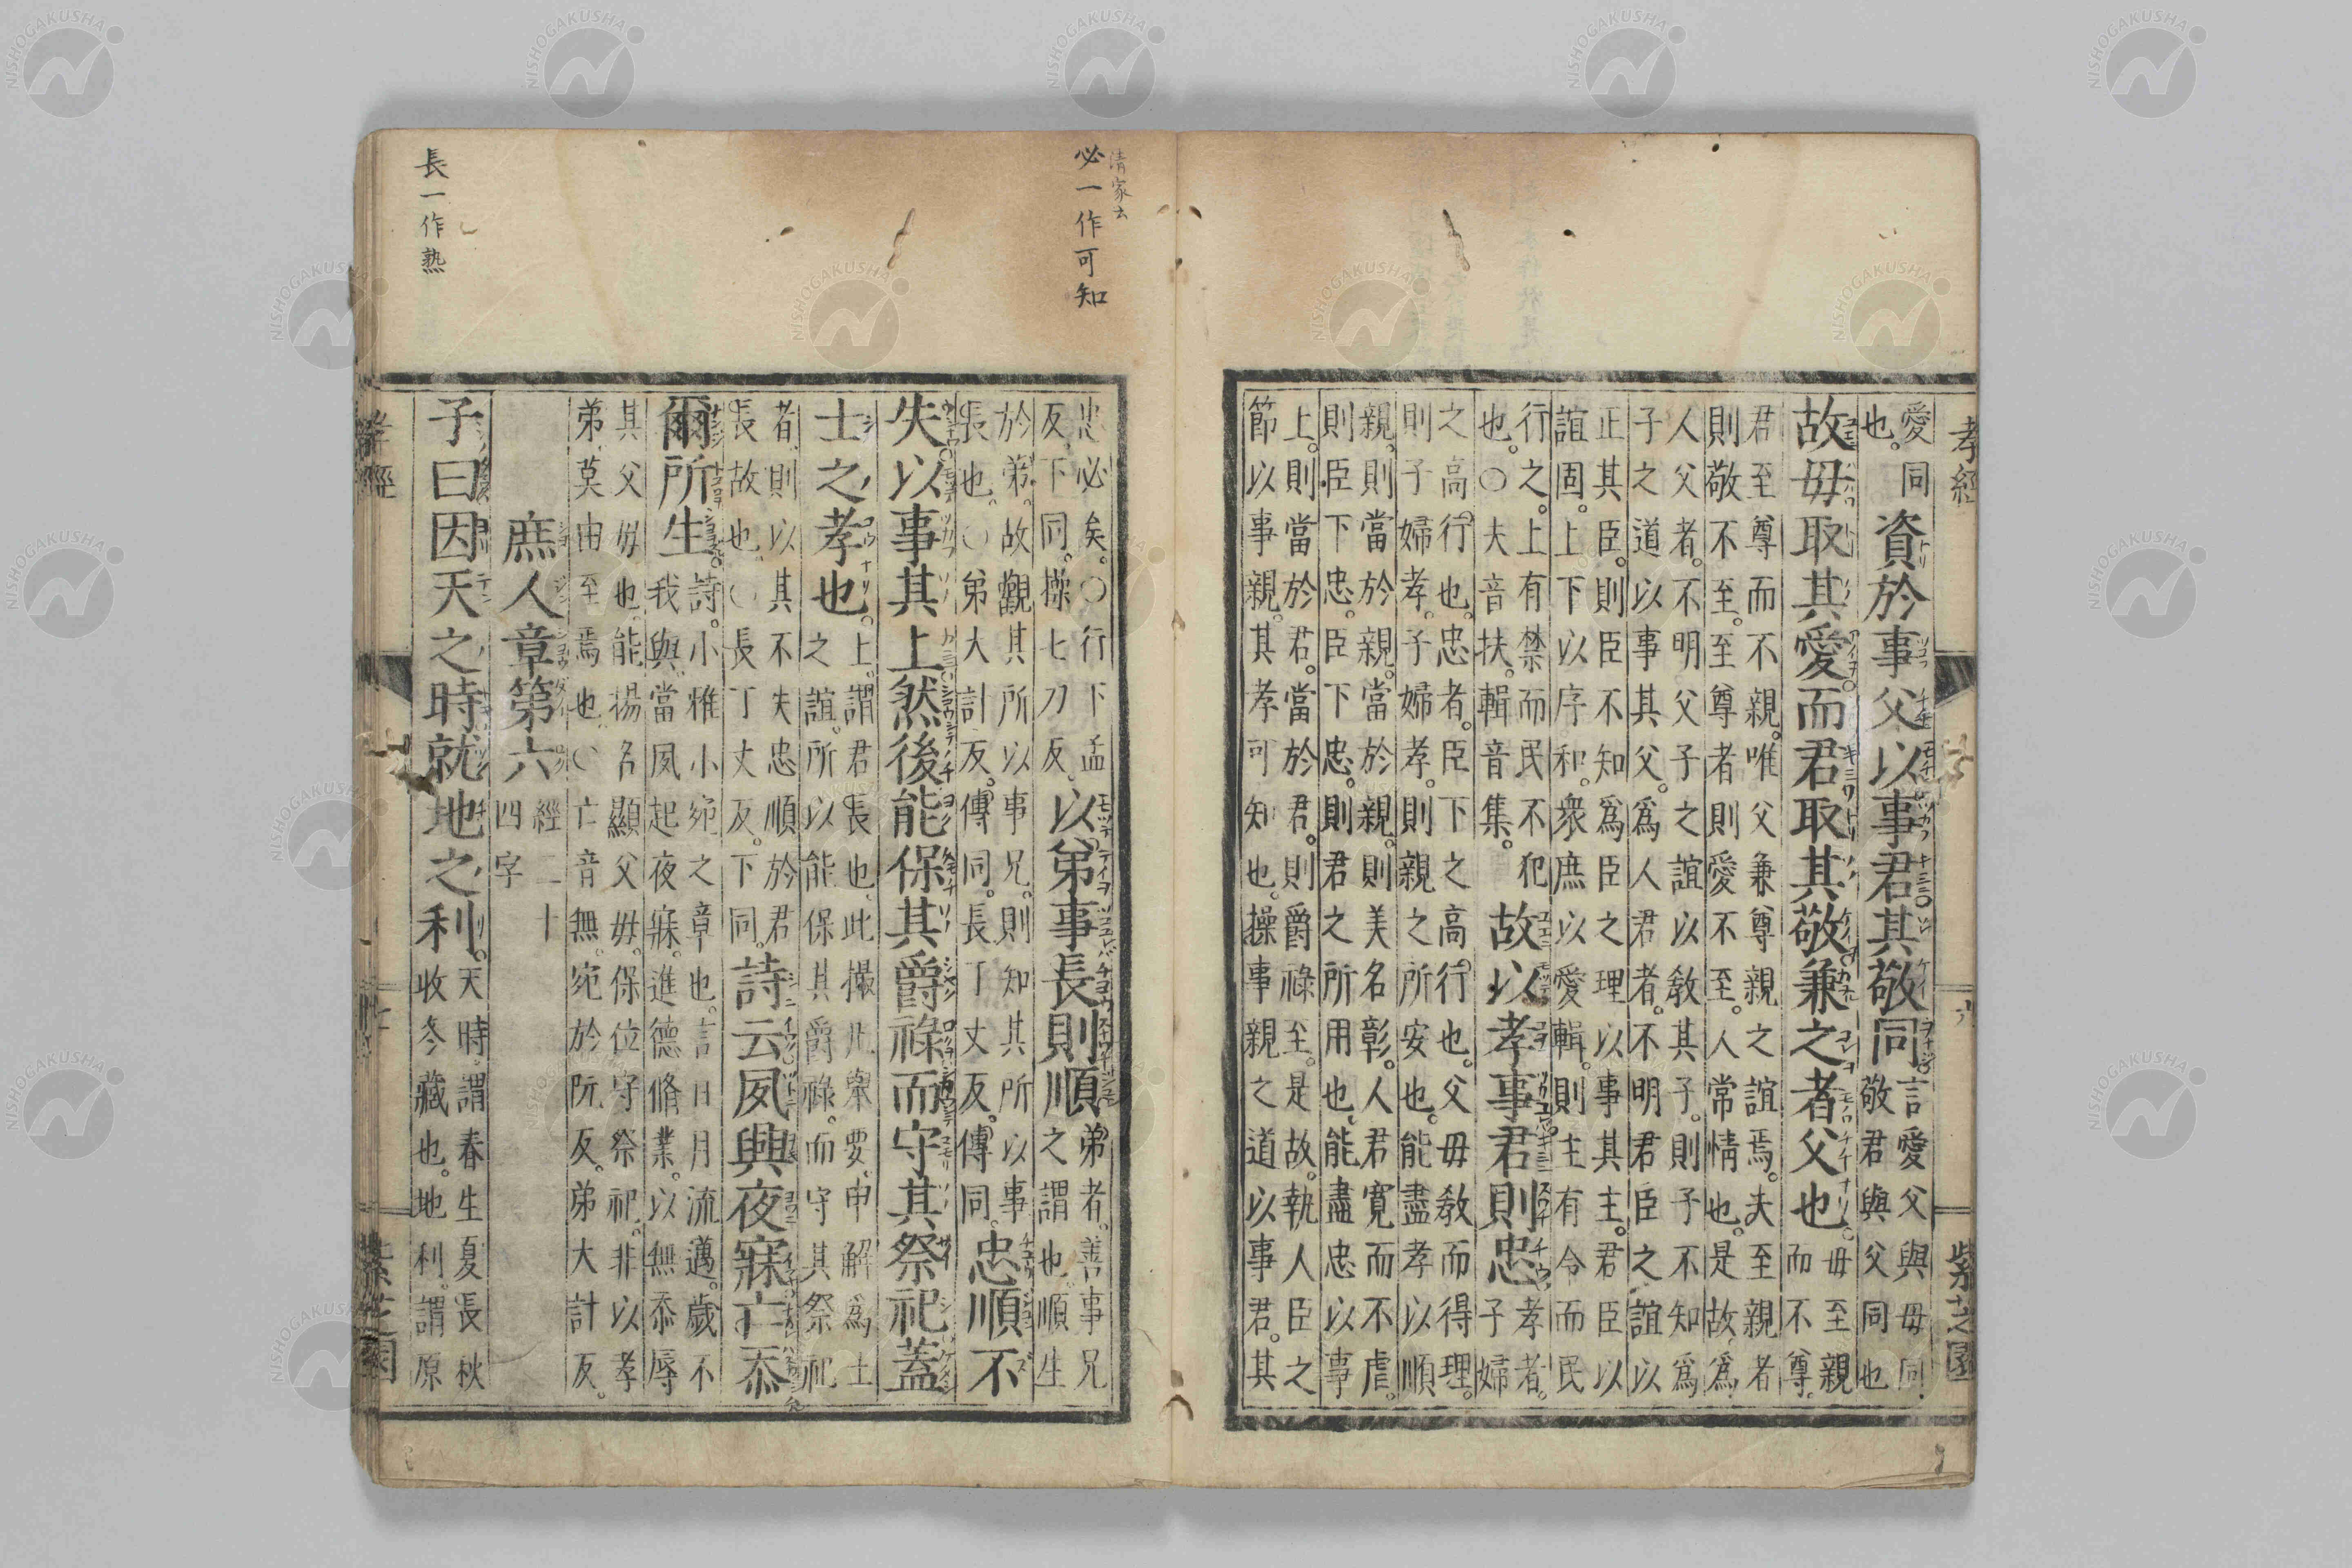 孝經 六 紫芝園
愛同
也。
資於事父以事君其敬同
言愛父與毋同。
敬君與父同也
故毋取其愛。而君取其敬兼之者父也。
毋至親
而不尊。
君至尊而不親。唯父兼尊親之誼焉。夫至親者
則敬不至。至尊者則愛不至。人常情也。是故爲
人父者。不明父子之誼以教其子。則子不知爲
子之道以事其父。爲人君者。不明君臣之誼以
正其臣。則臣不知爲臣之理以事其主。君臣以
誼固。上下以序和。衆庶以愛輯。則主有令而民
行之。上有禁而民不犯
也。〇夫音扶。輯音集。
故以孝事君則忠
孝者。
子婦
之高行也。忠者。臣下之高行也。父毋教而得理。
則子婦孝。子婦孝。則親之所安也。能盡孝以順
親。則當於親。當於親。則美名彰。人君寬而不虐。
則臣下忠。臣下忠。則君之所用也。能盡忠以事
上。則當於君。當於君。則爵祿至。是故。執人臣之
節以事親。其孝可知也。操事親之道以事君。其
清家云
必一作可知
忠必矣。〇行下孟
反。下同。操七刀反。
以弟事長則順
弟者。善事兄
之謂也。順生
於弟。故觀其所以事兄。則知其所以事
長也。〇弟大計反。傳同。長丁丈反。傳同。
忠順不
失以事其上然後能保其爵祿而守其祭祀蓋
士之孝也。
上。謂君長也。此撮凡舉要。申解爲士
之誼。所以能保其爵祿。而守其祭祀
者。則以其不失忠順於君
長故也。〇長丁丈反。下同。
詩云夙興夜寐亡忝
爾所生
詩。小雅小宛之章也。言日月流邁。歲不
我與。當夙起夜寐。進德脩業。以無忝辱
其父毋也。能揚名顯父毋。保位守祭祀。非以孝
弟。莫由至焉也。〇亡音無。宛於阮反。弟大計反。
庶人章第六
經二十
四字
長一作熟
子曰因天之時就地之利。
天時。謂春生夏長秋
收冬藏也。地利。謂原
孝經 紫芝園
NISHOGAKUSHA